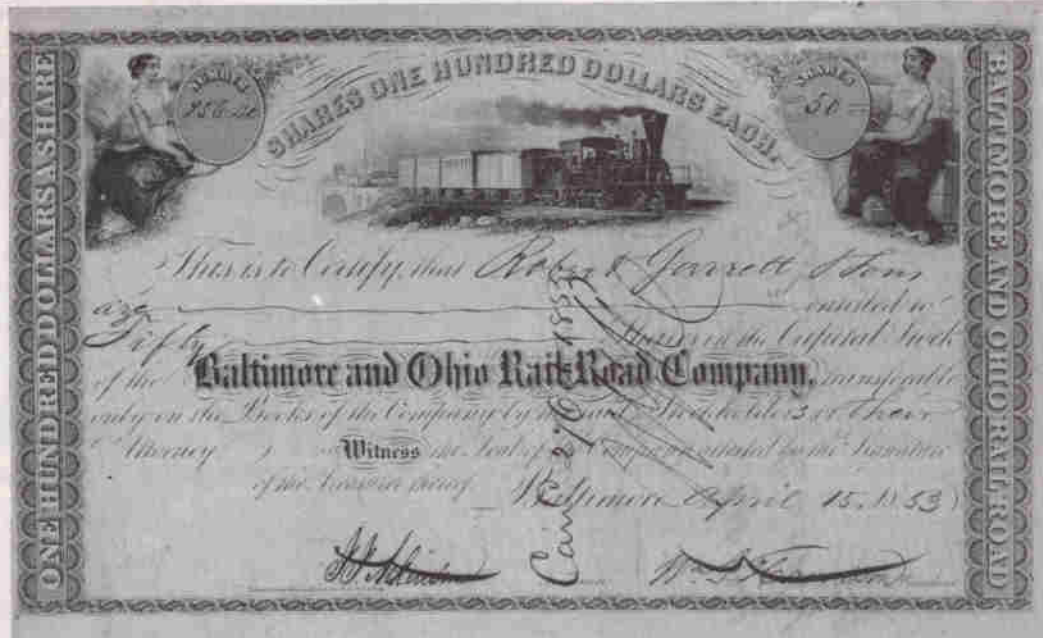 ONE HUNDRED DOLLARS A SHARE
NUMBER
SHARES ONE HUNDRED DOLLARS EACH.
SHARES
50
BALTIMORE AND OHIO RAIL ROAD
This is to Certify, that Robert Garrett & Sons
are entitled to
Fifty Shares in the Capital Stock
of the Baltimore and Ohio Rail Road Company, transferable
only on the Books of the Company by the said Stockholders or their
Attorney Witness the Seal of the Company attested by the Signature
of the Treasurer thereof. Baltimore April 15, 1853